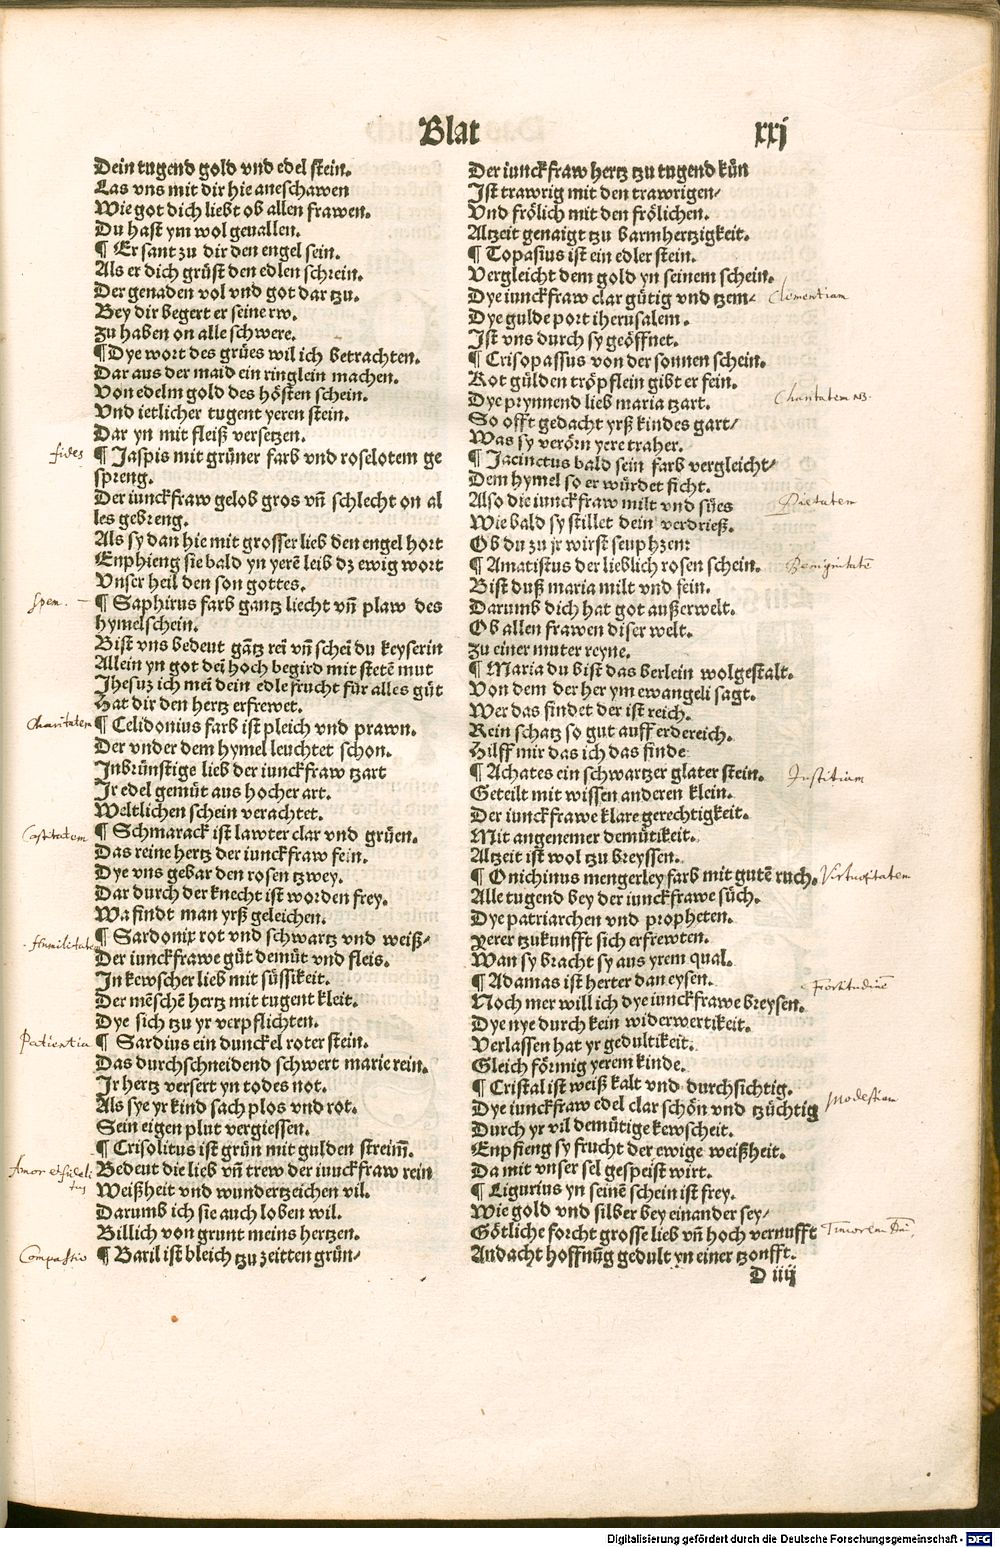 Blat xxj
Dein tugend gold vnd edel stein.
Las vns mit dir hie aneschawen
Wie got dich liebt ob allen frawen.
Du hast ym wol geuallen.
¶ Er sant zu dir den engel sein.
Als er dich grüst den edlen schrein.
Der genaden vol vnd got dar tzu.
Bey dir begert er seine rw.
zu haben on alle schwere.
¶ Dye wort des grües wil ich betrachten.
Dar aus der maid ein ringlein machen.
Von edelm gold des hösten schein.
Vnd ietlicher tugent yeren stein.
Dar yn mit fleiß versetzen.
fides
¶ Jaspis mit grüner farb vnd roselotem ge
spreng.
Der iunckfraw gelob gros vñ schlecht on al
les gebreng.
Als sy dan hie mit grosser lieb den engel hort
Enphieng sie bald yn yerē leib dz ewig wort
Vnser heil den son gottes.
spem.
¶ Saphirus farb gantz liecht vñ plaw des
hymelschein.
Bist vns bedeut gātz rei vñ schei du keyserin
Allein yn got dei hoch begird mit stetē mut
Jhesuz ich mei dein edle frucht für alles güt
Hat dir den hertz erfrewet.
Charitatem
¶ Celidonius farb ist pleich vnd prawn.
Der vnder dem hymel leuchtet schon.
Inbrünstige lieb der iunckfraw tzart
Jr edel gemüt aus hocher art.
Weltlichen schein verachtet.
Castitatem
¶ Schmarack ist lawter clar vnd grüen.
Das reine hertz der iunckfraw fein.
Dye vns gebar den rosen tzwey.
Dar durch der knecht ist worden frey.
Wa findt man yrß geleichen.
Humilitatem
¶ Sardonix rot vnd schwartz vnd weiß/
Der iunckfrawe güt demüt vnd fleis.
In kewscher lieb mit süssikeit.
Der mēschē hertz mit tugent kleit.
Dye sich tzu yr verpflichten.
Patientia
¶ Sardius ein dunckel roter stein.
Das durchschneidend schwert marie rein.
Ir hertz versert yn todes not.
Als sye yr kind sach plos vnd rot.
Sein eigen plut vergiessen.
¶ Crisolitus ist grün mit gulden streim̄.
Amor et fideli
tas
Bedeut die lieb vñ trew der iunckfraw rein
Weißheit vnd wundertzeichen vil.
Darumb ich sie auch loben wil.
Billich von grunt meins hertzen.
Compassio
¶ Baril ist bleich tzu zeitten grün/
Der iunckfraw hertz tzu tugend kün
Ist trawrig mit den trawrigen/
Vnd frölich mit den frölichen.
Altzeit genaigt tzu barmhertzigkeit.
¶ Topasius ist ein edler stein.
Vergleicht dem gold yn seinem schein.
Dye iunckfraw clar gütig vnd tzem/
Clementiam
Dye gulde port iherusalem.
Ist vns durch sy geöffnet.
¶ Crisopassus von der sonnen schein.
Rot gülden tröpflein gibt er fein.
Dye prynnend lieb maria tzart.
Charitatem NB.
So offt gedacht yrß kindes gart/
Was sy verörn yere traher.
¶ Jacinctus bald sein farb vergleicht/
Dem hymel so er würdet sicht.
Also die iunckfraw milt vnd sües
Pietatem
Wie bald sy stillet dein verdrieß.
Ob du zu jr wirst seuphzen:
¶ Amatistus der lieblich rosen schein.
Benignitatē
Bist duß maria milt vnd fein.
Darumb dich hat got außerwelt.
Ob allen frawen diser welt.
zu einer muter reyne.
¶ Maria du bist das berlein wolgestalt.
Von dem der her ym ewangeli sagt.
Wer das findet der ist reich.
Kein schatz so gut auff erdereich.
Hilff mir das ich das finde
¶ Achates ein schwartzer glater stein.
Justitiam
Geteilt mit wissen anderen klein.
Der iunckfrawe klare gerechtigkeit.
Mit angenemer demütikeit.
Altzeit ist wol tzu breyssen.
¶ Onichinus mengerley farb mit gutē ruch.
Virtuositatem
Alle tugend bey der iunckfrawe süch.
Dye patriarchen vnd propheten.
yerer tzukunfft sich erfrewten.
Wan sy bracht sy aus yrem qual.
¶ Adamas ist herter dan eysen.
Fortitudinē
Noch mer will ich dye iunckfrawe breysen.
Dye nye durch kein widerwertikeit.
Verlassen hat yr gedultikeit.
Gleich förmig yerem kinde.
¶ Cristal ist weiß kalt vnd durchsichtig.
Modestiam
Dye iunckfraw edel clar schön vnd tzüchtig
Durch yr vil demütige kewscheit.
Enpfieng sy frucht der ewige weißheit.
Da mit vnser sel gespeist wirt.
¶ Ligurius yn seinē schein ist frey.
Wie gold vnd silber bey einander sey/
Götliche forcht grosse lieb vñ hoch vernufft
Timorem Dni,
Andacht hoffnūg gedult yn einer tzonfft.
D iiij
Digitalisierung gefördert durch die Deutsche Forschungsgemeinschaft - DFG